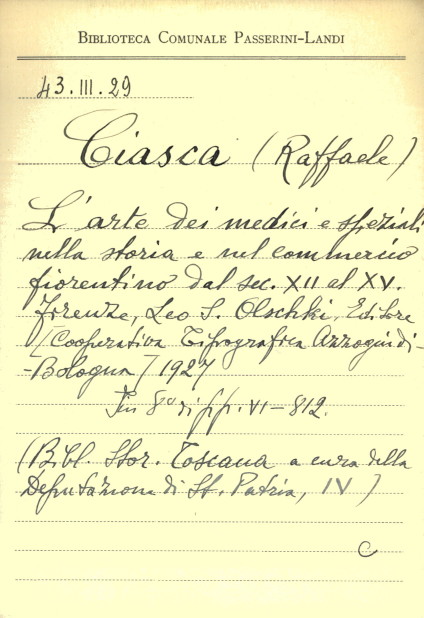 BIBLIOTECA COMUNALE PASSERINI-LANDI
43.III.29
Ciasca (Raffaele)
L'arte dei medici e speziali
nella storia e nel commercio
fiorentino dal sec. XII al XV.
Firenze, Leo S. Olschki, Editore
[Cooperativa Tipografica Azzoguidi-
-Bologna] 1927
In 8° di pp. VI-812.
(Bibl. Stor. Toscana a cura della
Deputazione di St. Patria, IV)
C